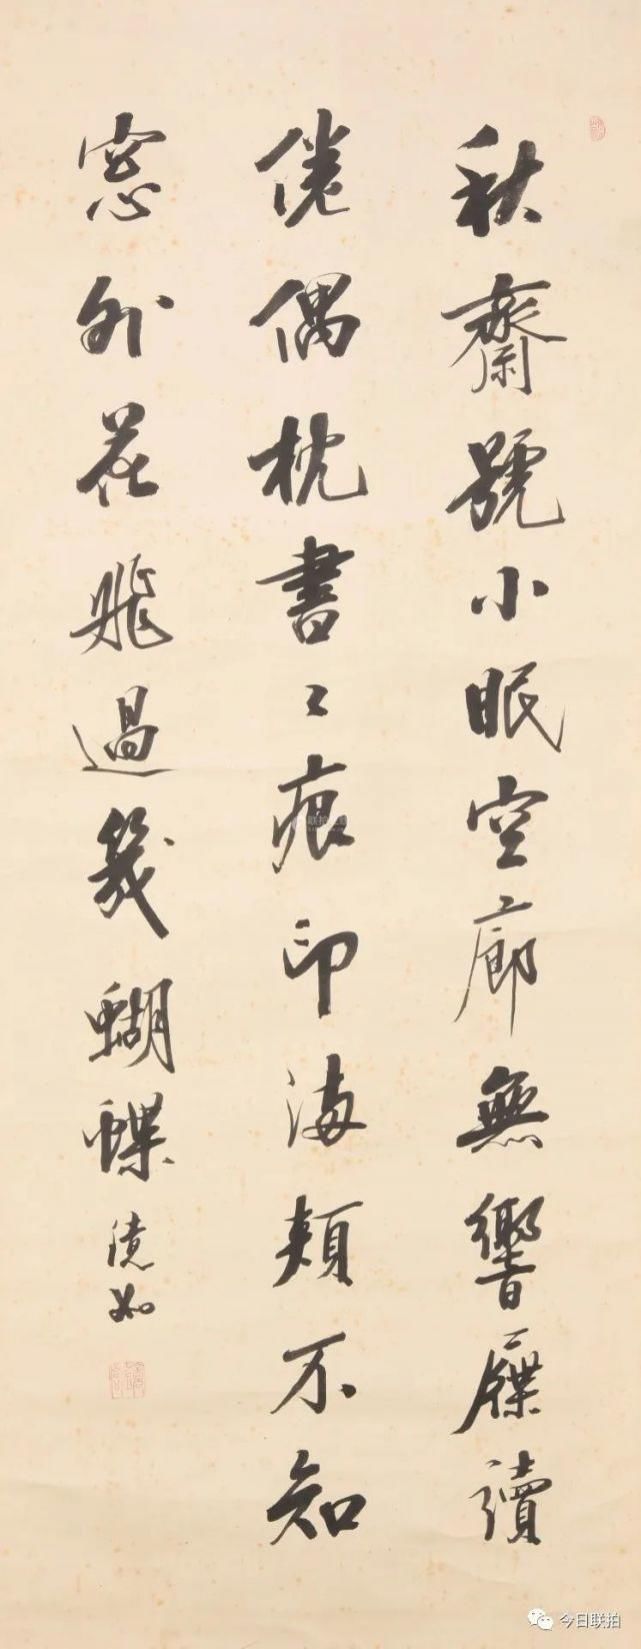 秋齋號小眠空廊無響屧讀
倦偶枕書〻痕印海頰不知
窓外花飛過幾蝴蝶
如
今日联拍